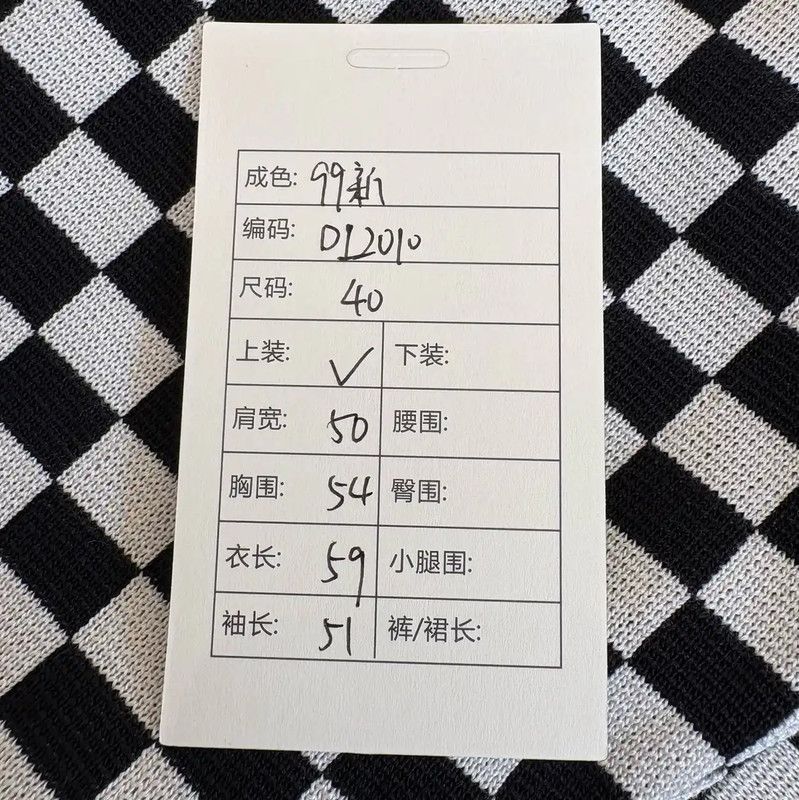 成色: 99新
编码: D12010
尺码: 40
上装: ✓ 下装:
肩宽: 50 腰围:
胸围: 54 臀围:
衣长: 59 小腿围:
袖长: 51 裤/裙长: